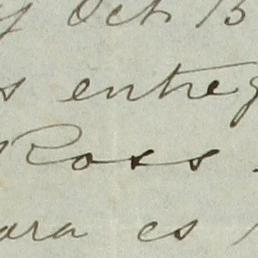 y Oct 15
s entreg
Ross
ara es